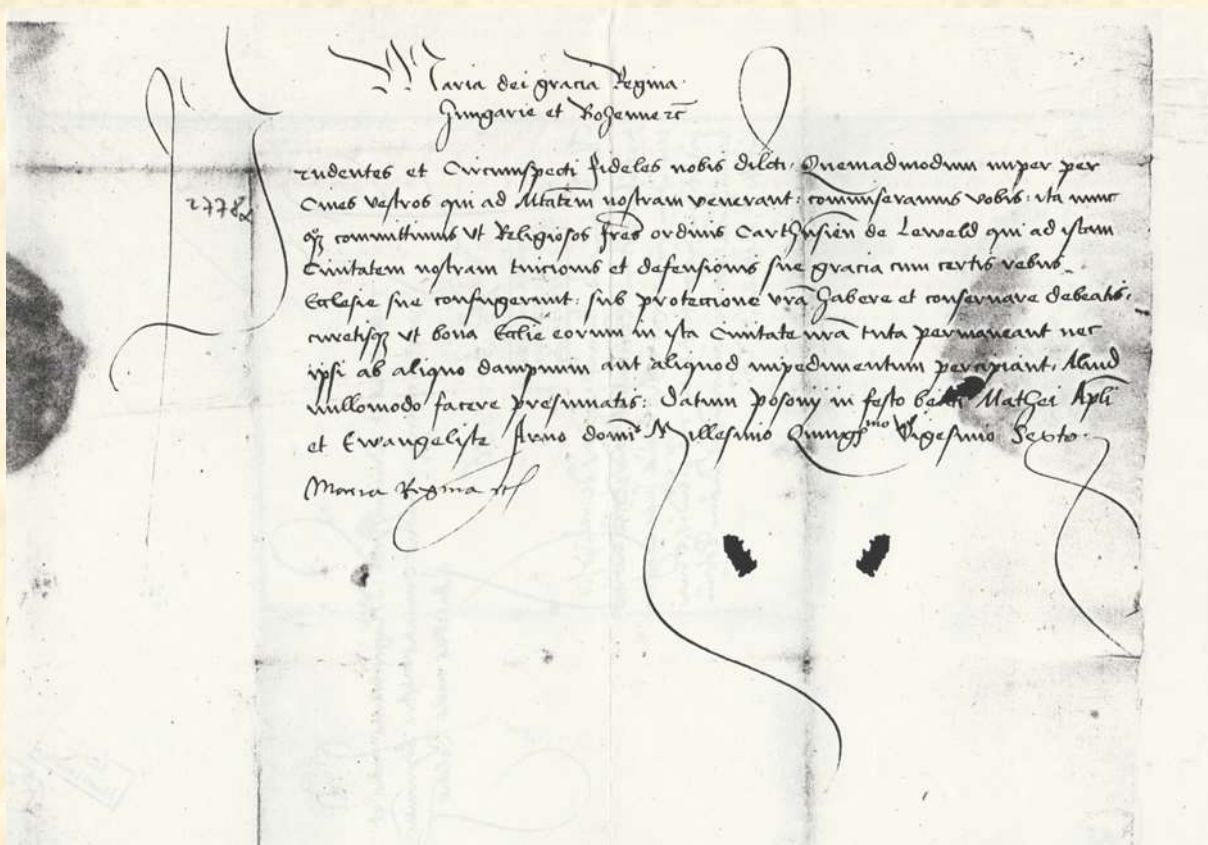 Maria dei gracia Regina
Hungarie et Bohemie etc
Prudentes et Circumspecti fideles nobis dilcti. Quemadmodum nuper per
Ciues vestros qui ad Mtatem nostram venerant: commiseramus vobis: ita nunc
qz committimus vt Religiosos fres ordinis Carthusien de Leweld qui ad istam
Ciuitatem nostram tuicionis et defensionis sue gracia cum certis rebus
Ecclesie sue confugerunt: sub protectione vra habere et conseruare debeatis.
curetisqz vt bona Ecclie eorum in ista Ciuitate nra tuta permaneant nec
ipsi ab aliquo dampnum aut aliquod impedimentum percipiant. Aliud
nullomodo facere presumatis: datum posonij in festo beati Mathei Apli
et Ewangeliste Anno domi Millesimo Quingmo Vigesimo Sexto.
Maria Regina etc